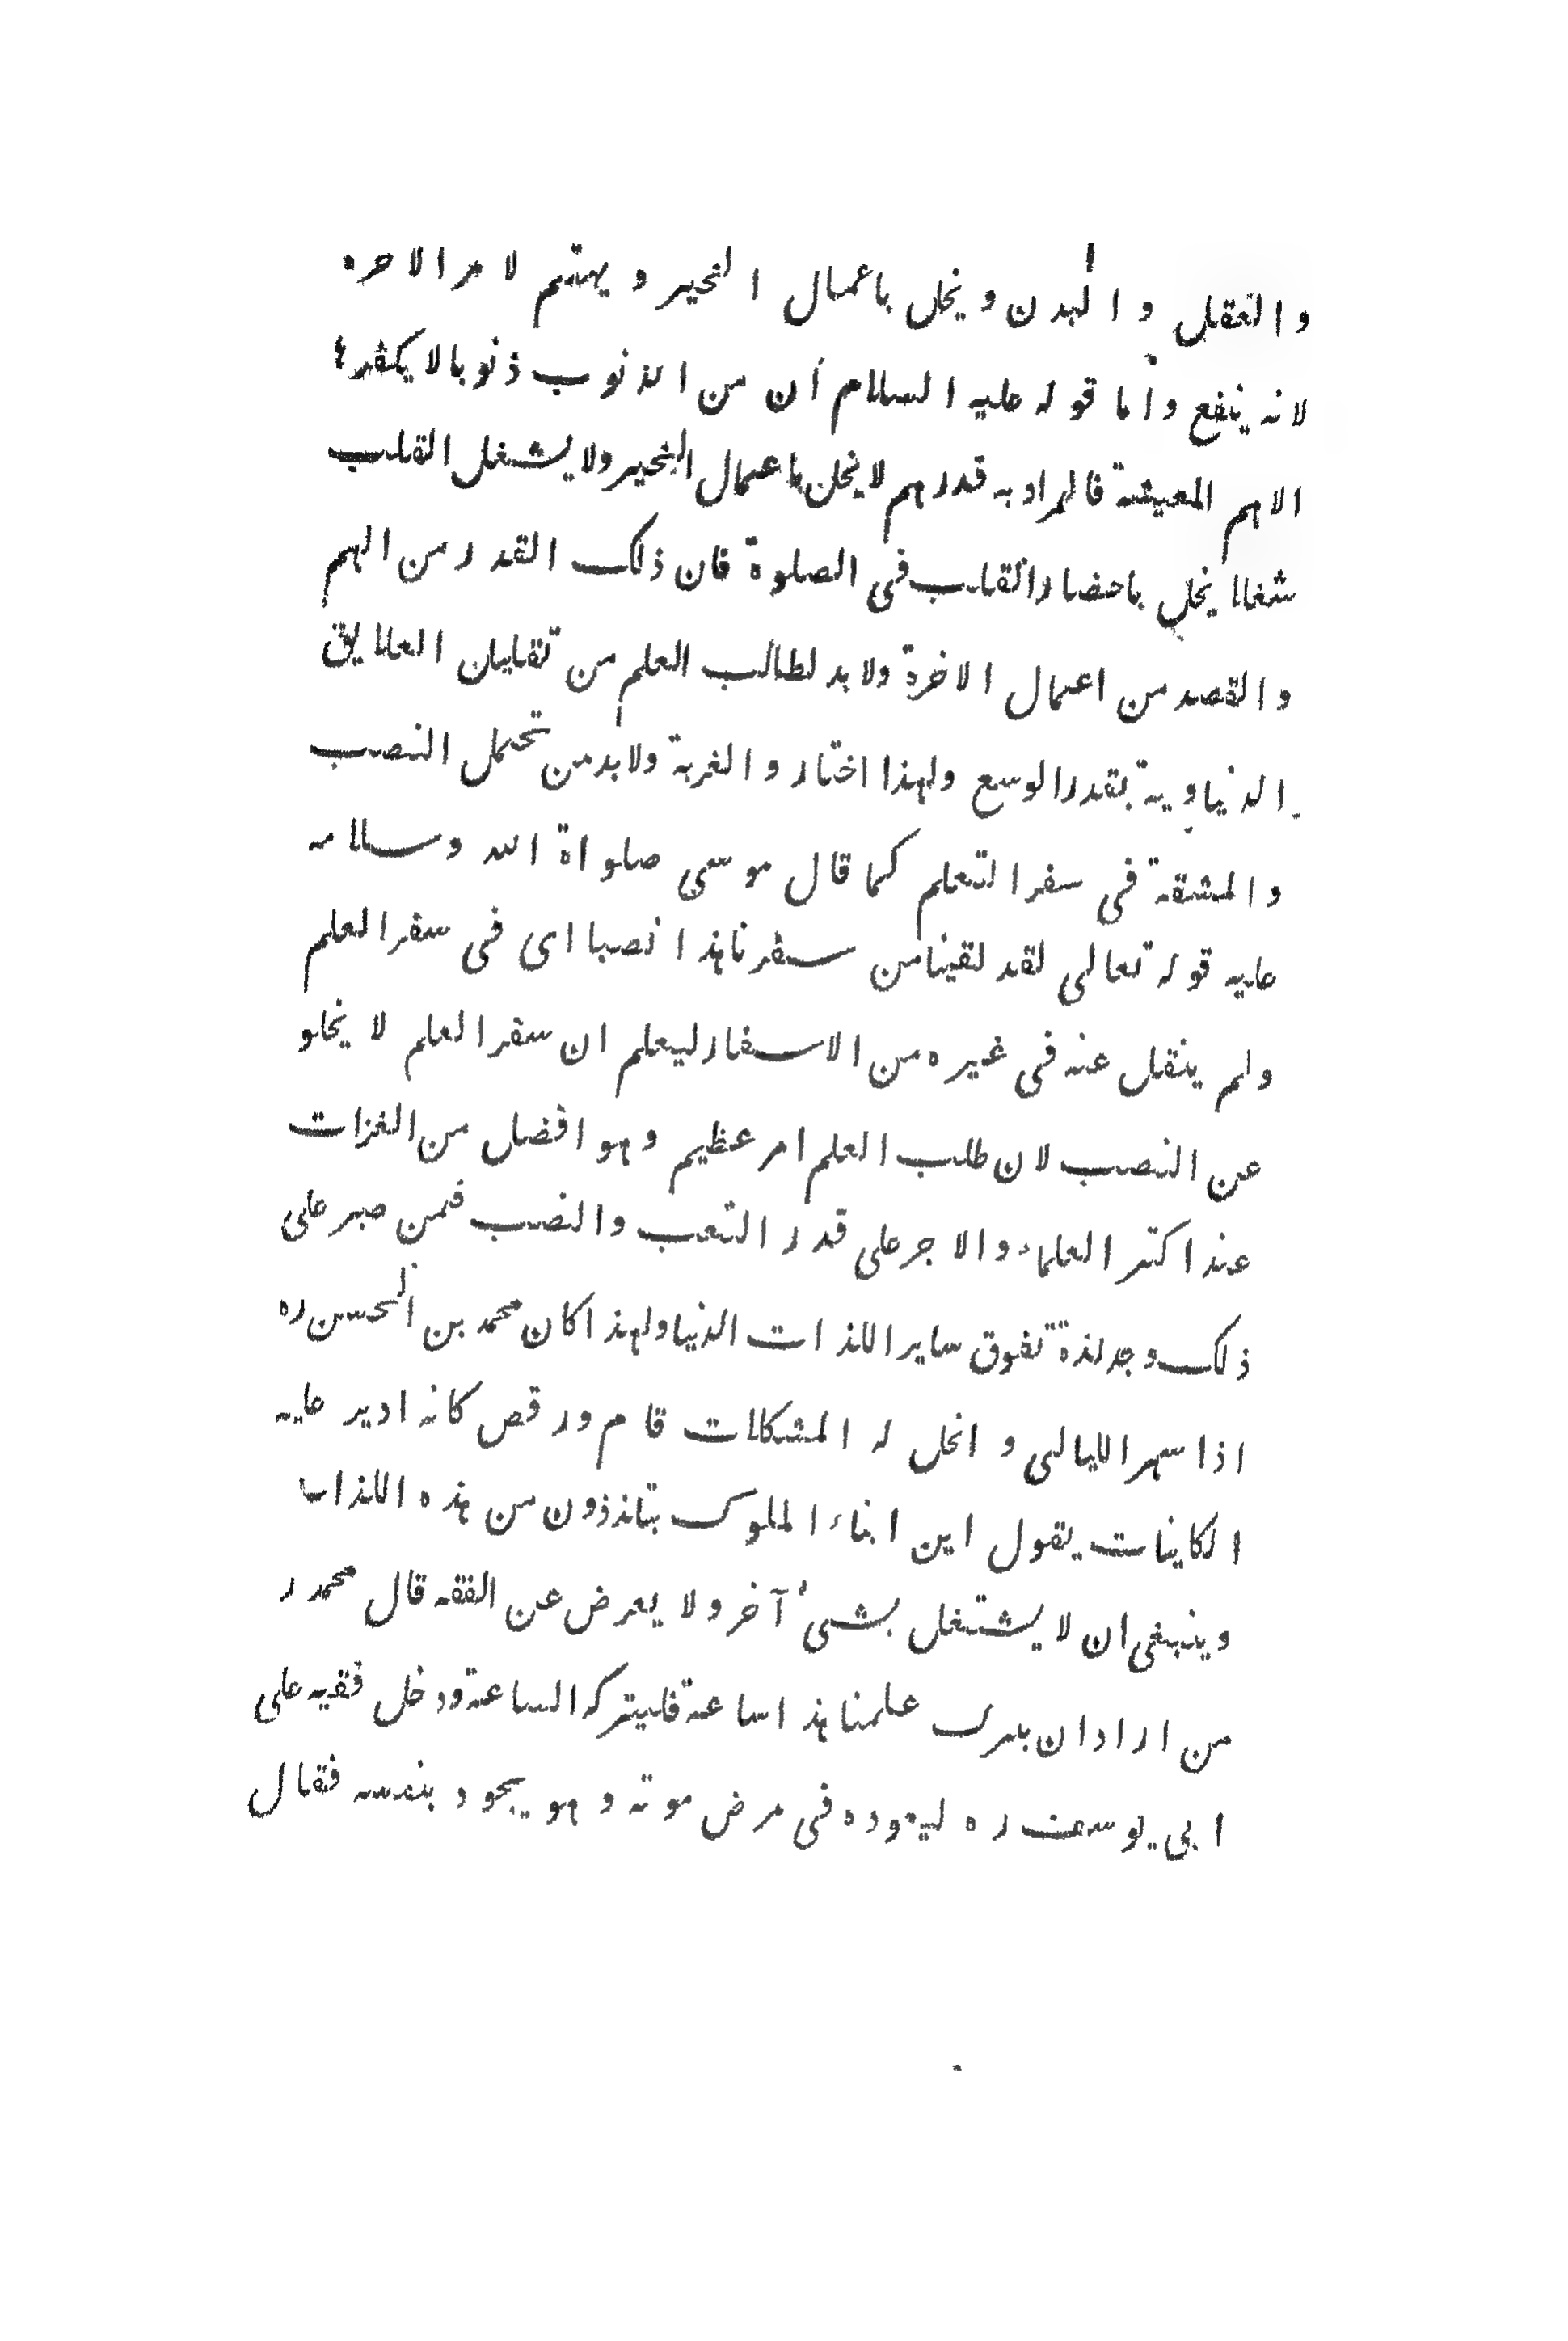 والعقل والبدن ويخل باعمال الخير ويهتم لامر الاخره
لانه ينفع واما قوله عليه السلام ان من الذنوب ذنوبا لا يكفرها
الا هم المعيشة فالمراد به قدر هم لا يخل باعمال الخير ولا يشغل القلب
شغلا يخل باحضار القلب فى الصلوة فان ذلك القدر من الهم
والقصد من اعمال الاخرة ولا بد لطالب العلم من تقليل العلايق
الدنياوية بقدر الوسع ولهذا اختاروا الغربة ولا بد من تحمل النصب
والمشقة فى سفر التعلم كما قال موسى صلواة الله وسلامه
عليه قوله تعالى لقد لقينا من سفرنا هذا نصبا اى فى سفر العلم
ولم ينقل عنه فى غيره من الاسفار ليعلم ان سفر العلم لا يخلو
عن النصب لان طلب العلم امر عظيم وهو افضل من الغزات
عند اكثر العلماء والاجر على قدر التعب والنصب فمن صبر على
ذلك وجد لذة تفوق ساير اللذات الدنيا ولهذا كان محمد بن الحسن ره
اذا سهر الليالى وانحل له المشكلات قام ورقص كانه ادير عليه
الكاينات يقول اين ابناء الملوك يتلذذون من هذه اللذات
وينبغى ان لا يشتغل بشىء آخر ولا يعرض عن الفقه قال محمد ر
من اراد ان يترك علمنا هذا ساعة فليتركه الساعة ودخل فقيه على
ابى يوسف ره ليعوده فى مرض موته وهو يجود بنفسه فقال